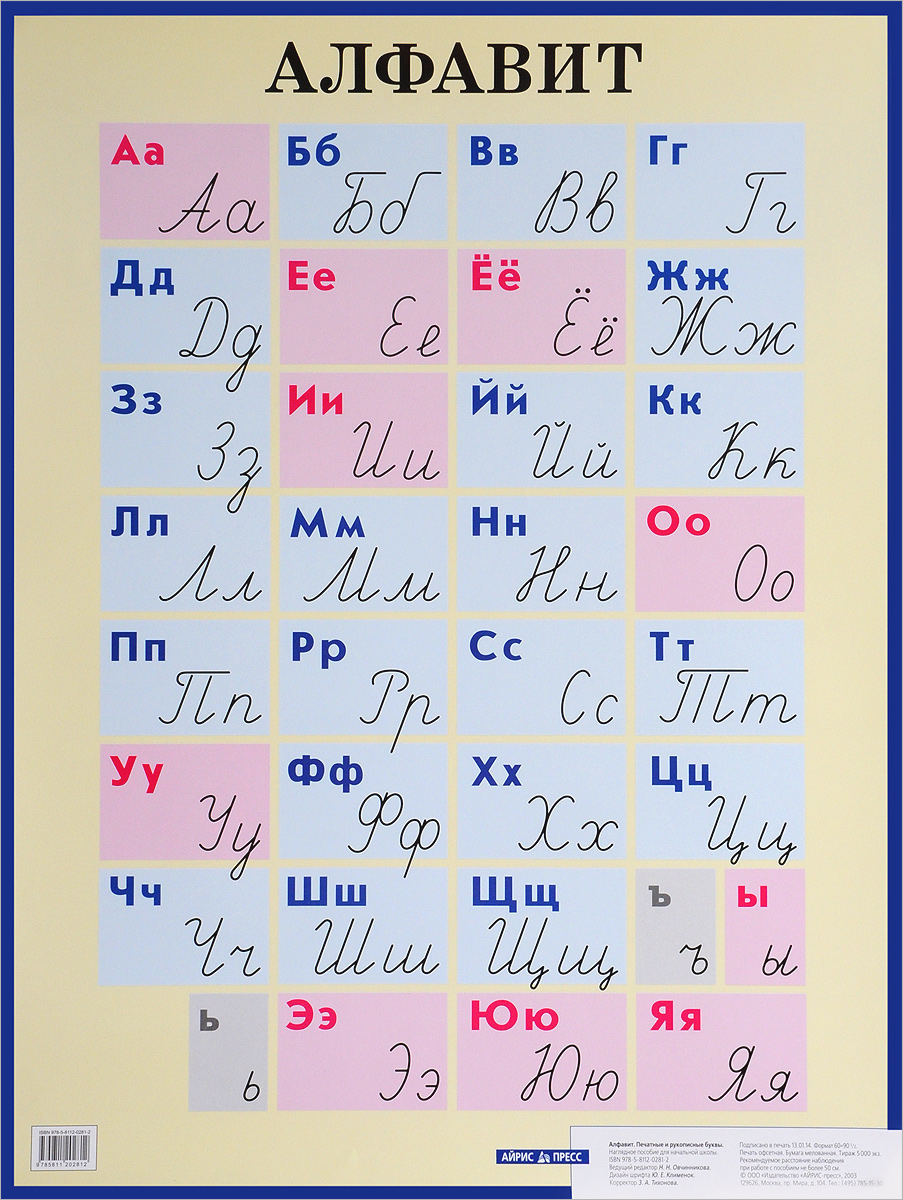 АЛФАВИТ
Аа Бб Вв Гг
Аа Бб Вв Гг
Дд Ее Ёё Жж
Дд Ее Ёё Жж
Зз Ии Йй Кк
Зз Ии Йй Кк
Лл Мм Нн Оо
Лл Мм Нн Оо
Пп Рр Сс Тт
Пп Рр Сс Тт
Уу Фф Хх Цц
Уу Фф Хх Цц
Чч Шш Щщ ъ ы
Чч Шш Щщ ъ ы
ь Ээ Юю Яя
ь Ээ Юю Яя
ISBN 978-5-8112-0281-2
9785811202812
АЙРИС ПРЕСС
Алфавит. Печатные и рукописные буквы.
Наглядное пособие для начальной школы.
ISBN 978-5-8112-0281-2
Ведущий редактор Н. Н. Овчинникова.
Дизайн шрифта Ю. Е. Клименок.
Корректор З. А. Тихонова.
Подписано в печать 13.01.14. Формат 60×90 ¹/₂.
Печать офсетная. Бумага мелованная. Тираж 5 000 экз.
Рекомендуемое расстояние наблюдения
при работе с пособием не более 50 см.
© ООО «Издательство «АЙРИС-пресс», 2003
129626, Москва, пр. Мира, д. 104. Тел.: (495)